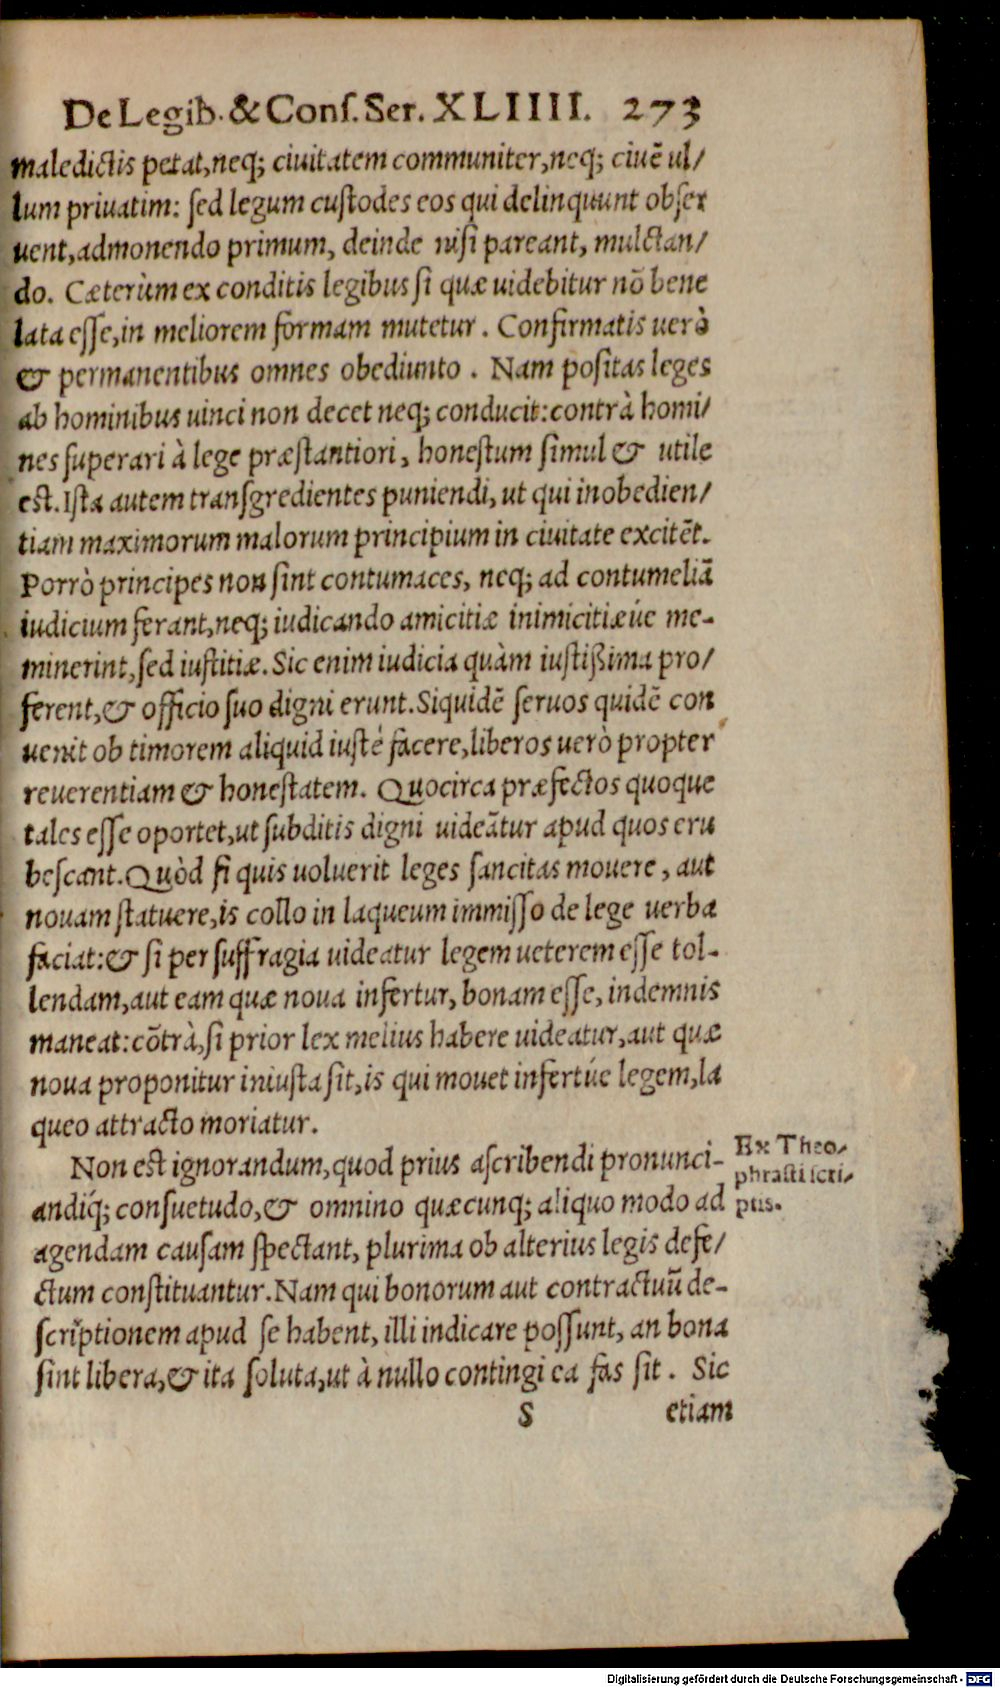 De Legib. & Conſ. Ser. XLIIII. 273
maledictis petat, neq; ciuitatem communiter, neq; ciuē ul/
lum priuatim: ſed legum cuſtodes eos qui delinquunt obſer
uent, admonendo primum, deinde niſi pareant, mulctan/
do. Cæterùm ex conditis legibus ſi quæ uidebitur nō bene
lata eſſe, in meliorem formam mutetur. Confirmatis uerò
& permanentibus omnes obediunto. Nam poſitas leges
ab hominibus uinci non decet neq; conducit: contrà homi/
nes ſuperari à lege præſtantiori, honeſtum ſimul & utile
est. Iſta autem tranſgredientes puniendi, ut qui inobedien/
tiam maximorum malorum principium in ciuitate excitēt.
Porrò principes non ſint contumaces, neq; ad contumeliā
iudicium ferant, neq; iudicando amicitiæ inimicitiæúe me-
minerint, ſed iuſtitiæ. Sic enim iudicia quàm iuſtißima pro/
ferent, & officio ſuo digni erunt. Siquidē ſeruos quidē con
uenit ob timorem aliquid iuſtè facere, liberos uerò propter
reuerentiam & honeſtatem. Quocirca præfectos quoque
tales eſſe oportet, ut ſubditis digni uideātur apud quos eru
beſcant. Quòd ſi quis uoluerit leges ſancitas mouere, aut
nouam ſtatuere, is collo in laqueum immiſſo de lege uerba
faciat: & ſi per ſuffragia uideatur legem ueterem eſſe tol-
lendam, aut eam quæ noua infertur, bonam eſſe, indemnis
maneat: cōtrà, ſi prior lex melius habere uideatur, aut quæ
noua proponitur iniuſta ſit, is qui mouet infertúe legem, la
queo attracto moriatur.
Non est ignorandum, quod prius aſcribendi pronunci-
andiq́; conſuetudo, & omnino quæcunq; aliquo modo ad
agendam cauſam ſpectant, plurima ob alterius legis defe/
ctum conſtituantur. Nam qui bonorum aut contractuū de-
ſcriptionem apud ſe habent, illi indicare poſſunt, an bona
ſint libera, & ita ſoluta, ut à nullo contingi ea fas ſit. Sic
S etiam
Ex Theo/
phraſti ſcri/
ptis.
Digitalisierung gefördert durch die Deutsche Forschungsgemeinschaft - DFG